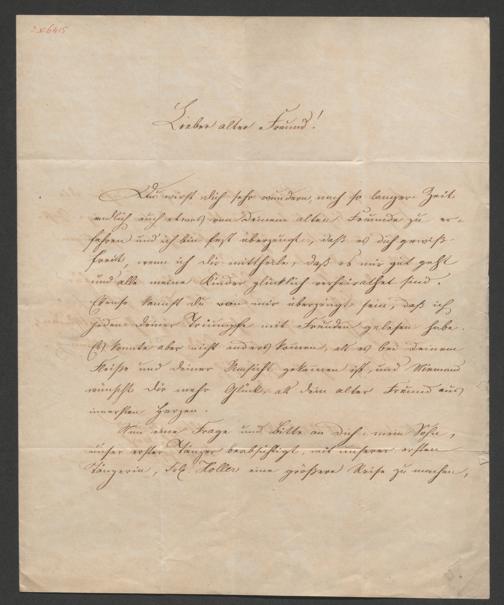 Lieber alter Freund!
Du wirst dich sehr wundern, nach so langer Zeit
endlich auch etwas von deinem alten Freunde zu er-
fahren und ich bin fest überzeugt, daß es dich gewiß
freut, wenn ich dir mittheile, daß es mir gut geht
und alle meine Kinder glücklich verheirathet sind.
Ebenso kannst du von mir überzeugt sein, daß ich
jeden deiner Triumpfe mit Freuden gelesen habe.
Es konnte aber nicht anders kommen, als es bei deinem
Fleiße und deiner gekommen ist, und Niemand
wünscht dir mehr Glück, als dein alter Freund aus
innersten Herzen.
Nun eine Frage und Bitte an dich: mein Sohn,
unser erster Tänzer beabsichtigt, mit unserer ersten
Tänzerin, Holler eine größere Reise zu machen,